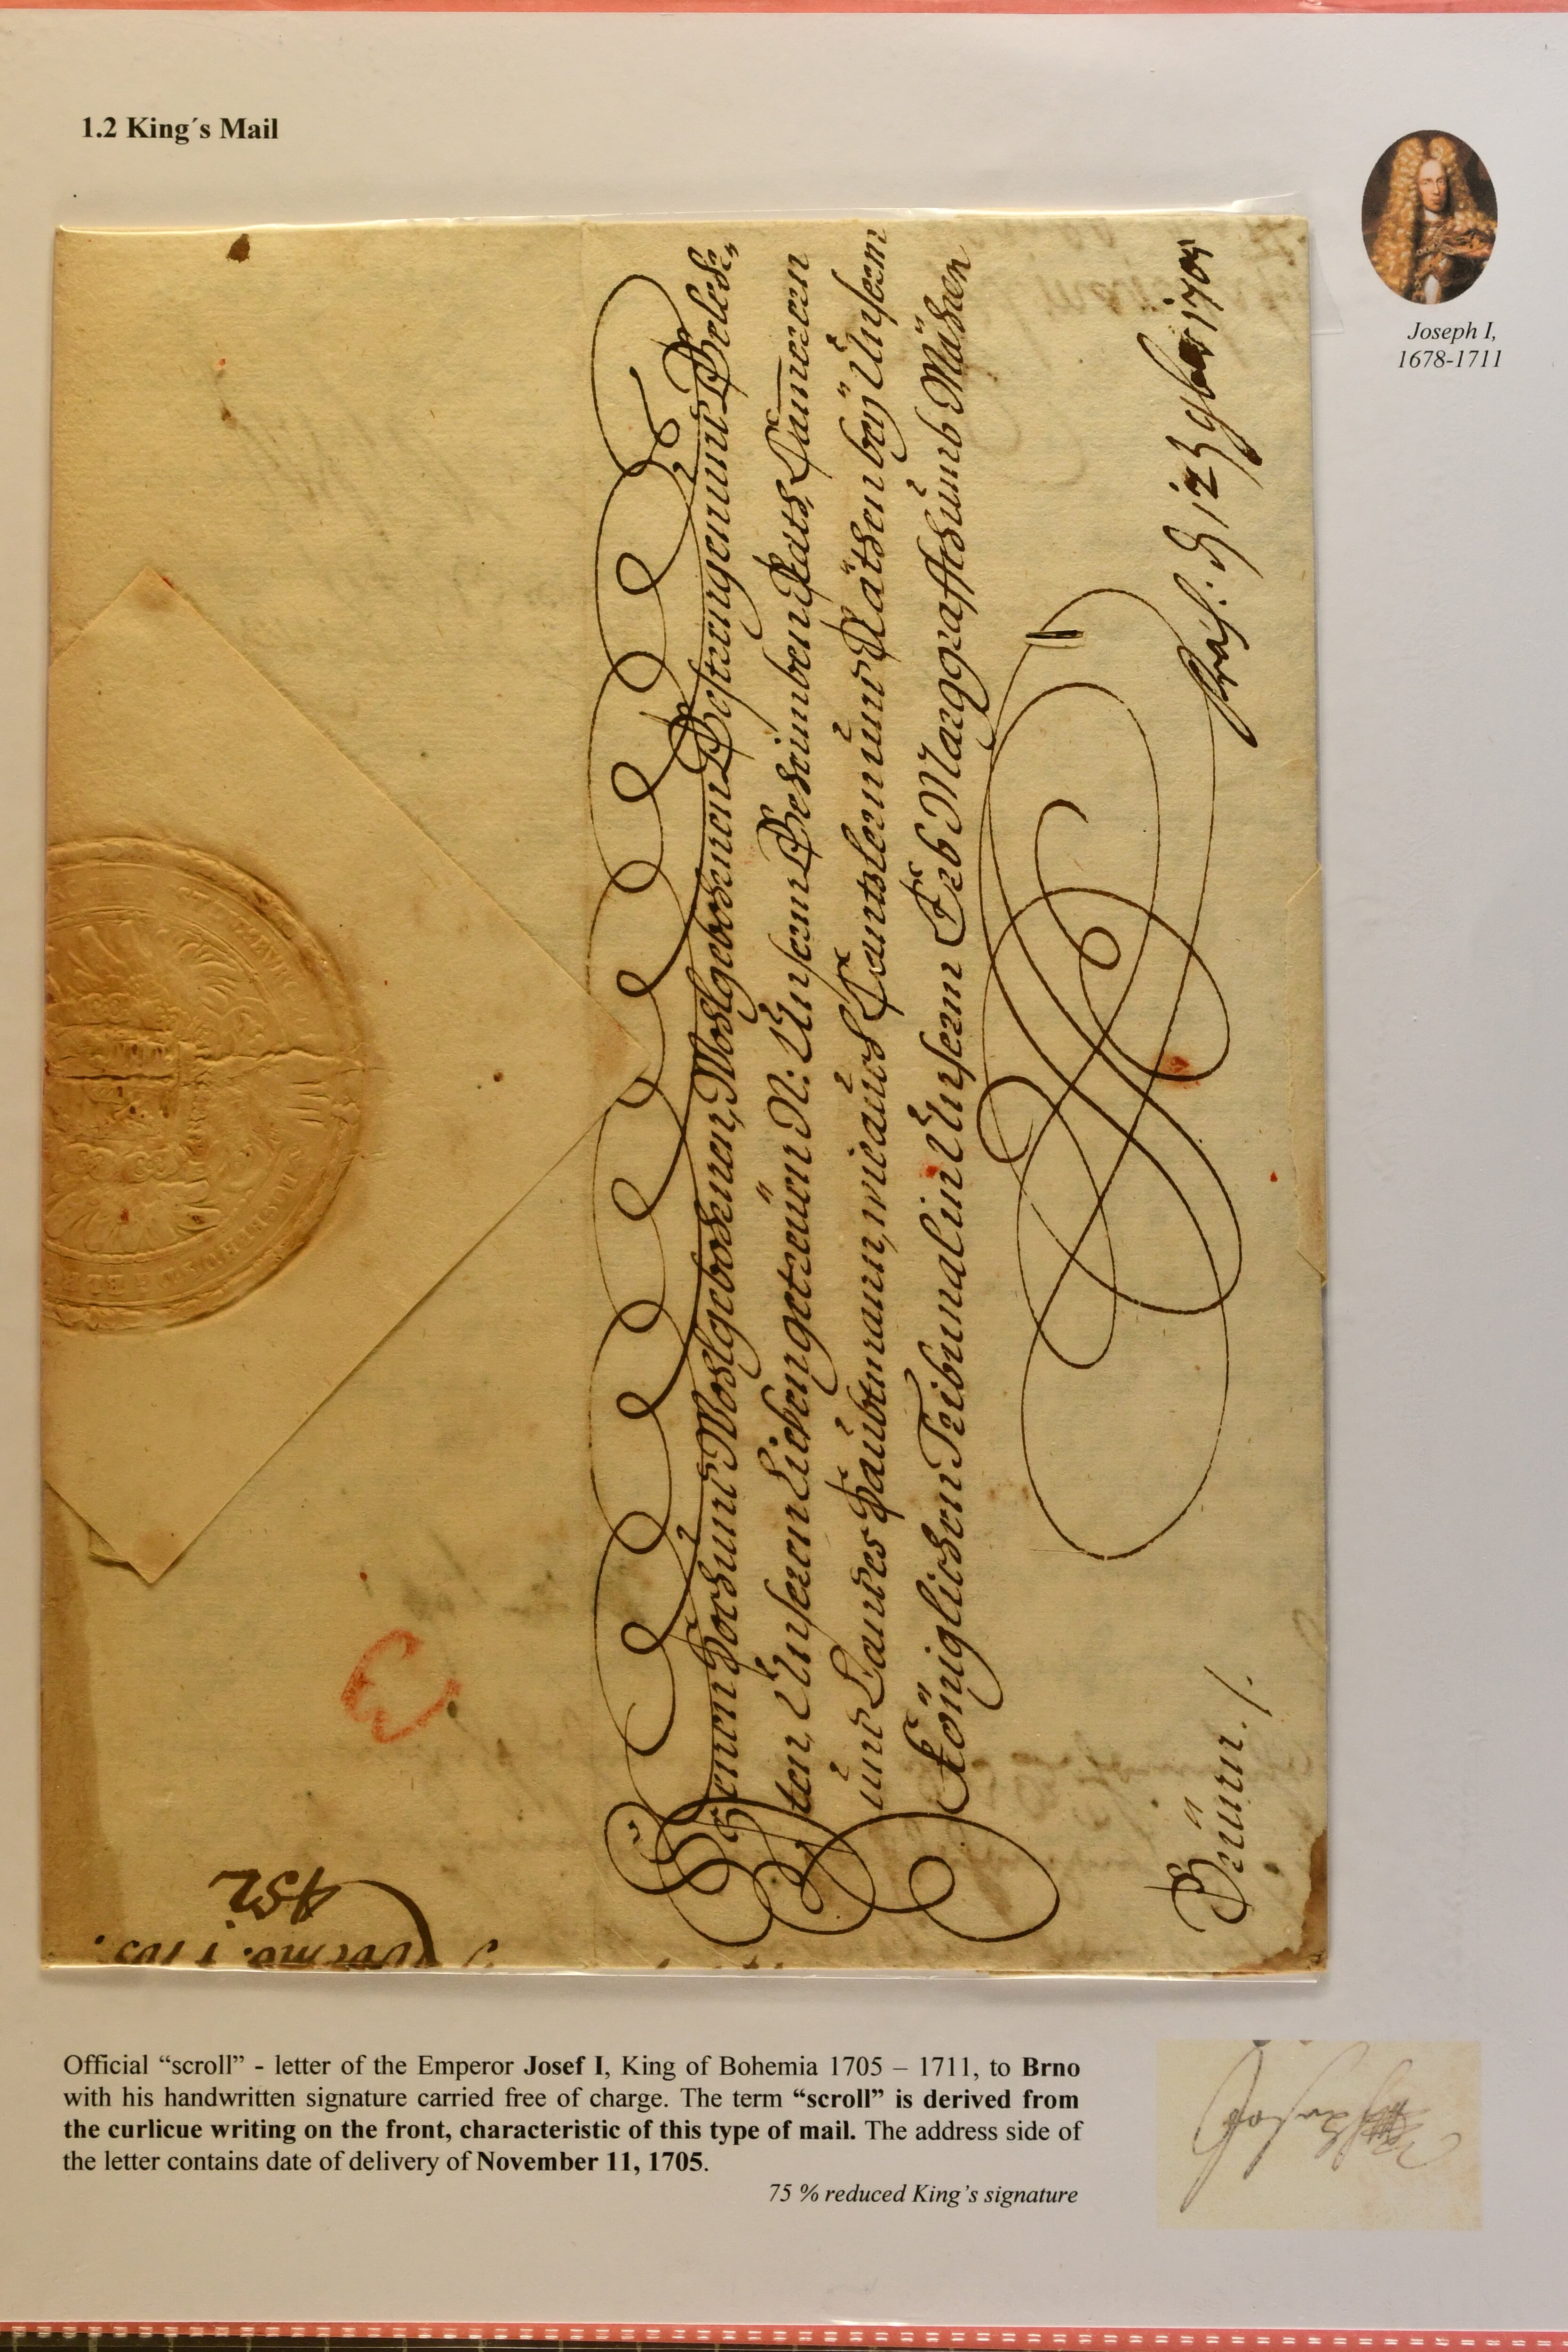 1.2 King´s Mail
Joseph I,
1678-1711
Denen Hoch und Wohlgebohrnen, Wohlgebohrnen Gestrengen und Gelehr-
ten, Unseren Lieben getreüen N: Unserm Geheimben Rath, Cammerern
und Landes Haubtmann, wie auch Cantzlern und Räthen beÿ Unserm
Königlichen Tribunal in Unserm Erb Marggraffthumb Mähren
Brünn ./.
Præs: d 12 9bris 1705
452
1705.
Official “scroll” - letter of the Emperor Josef I, King of Bohemia 1705 – 1711, to Brno
with his handwritten signature carried free of charge. The term “scroll” is derived from
the curlicue writing on the front, characteristic of this type of mail. The address side of
the letter contains date of delivery of November 11, 1705.
75 % reduced King’s signature
Josephus